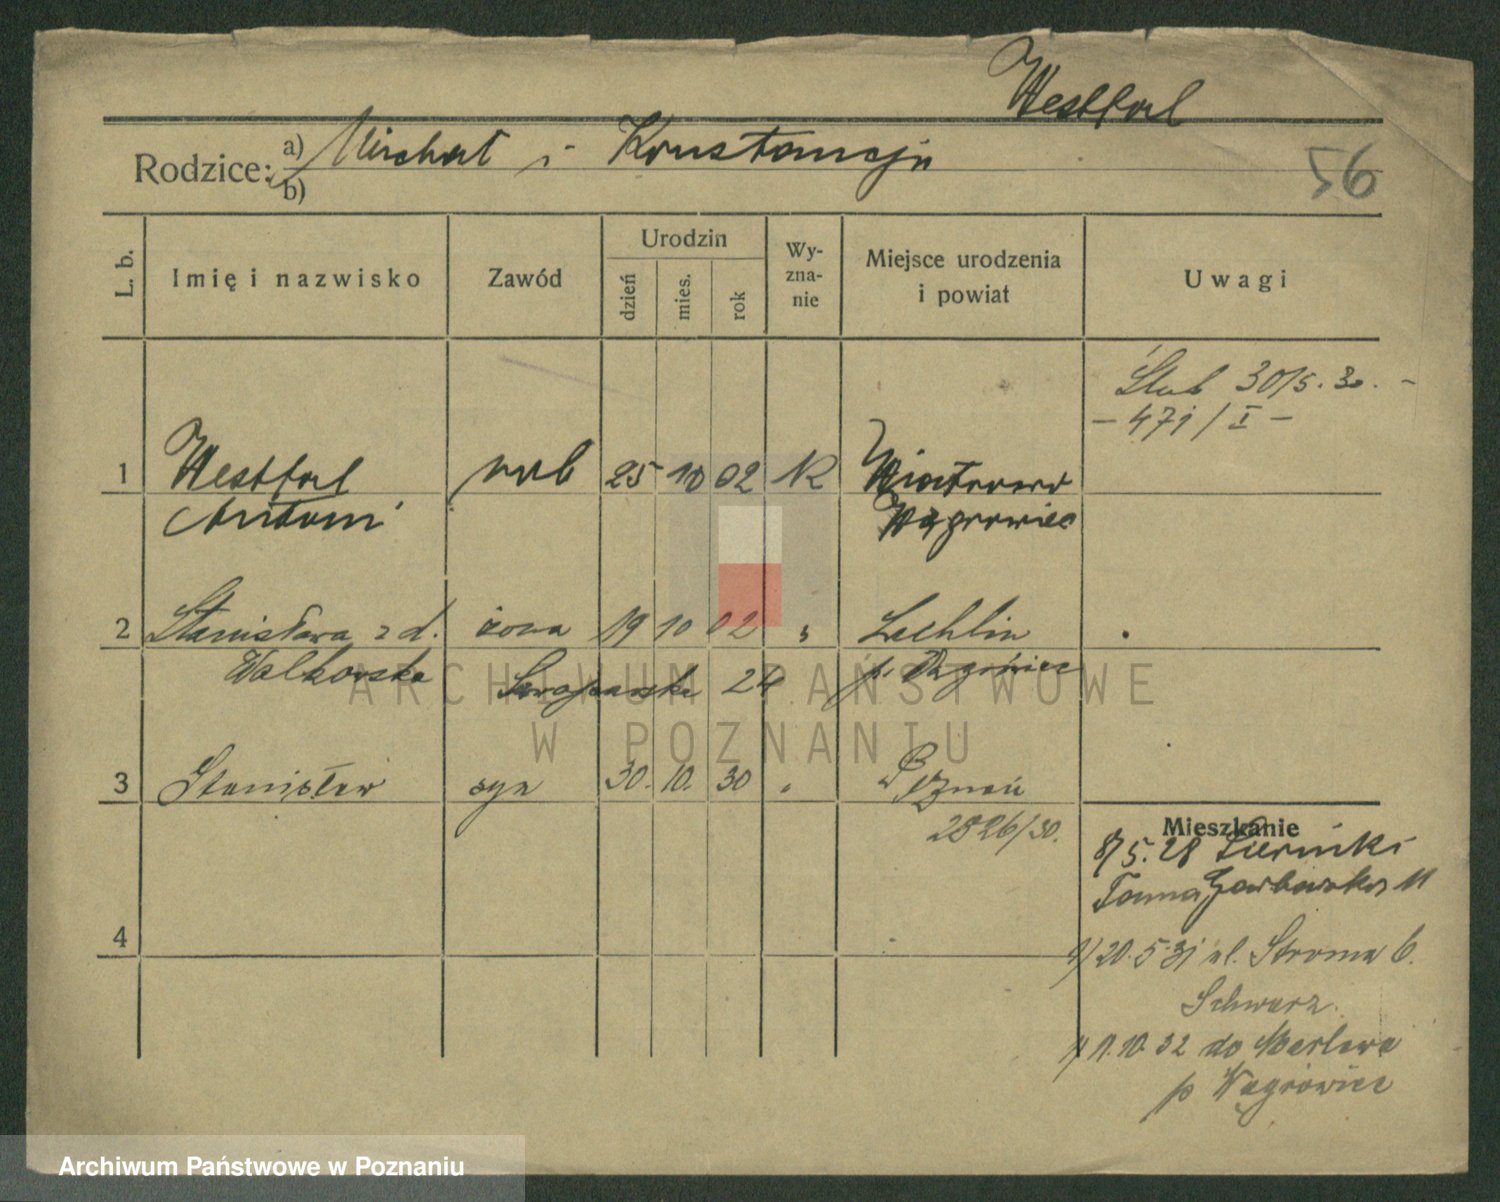 Westfal
Rodzice: a) Michał i Konstancja
b)
56
L. b.
Imię i nazwisko
Zawód
Urodzin
dzień
mies.
rok
Wy-
zna-
nie
Miejsce urodzenia
i powiat
Uwagi
Ślub 30/5. 30. -
- 471 / I -
1 Westfal rob 25 10 02 R Wiatrowo
Antoni Wągrowiec
2 Stanisława z d. żona 19 10 02 " Lechlin
Walkowska 24 p. Wągrówiec
3 Stanisław syn 30. 10. 30 " Poznań
2526/30.
Mieszkanie
8/5. 28
11
4
20. 5. 31 ul. Stroma 6.
Schwarz.
1. 10. 32 do
p Wągrówiec
ARCHIWUM PAŃSTWOWE
W POZNANIU
Archiwum Państwowe w Poznaniu